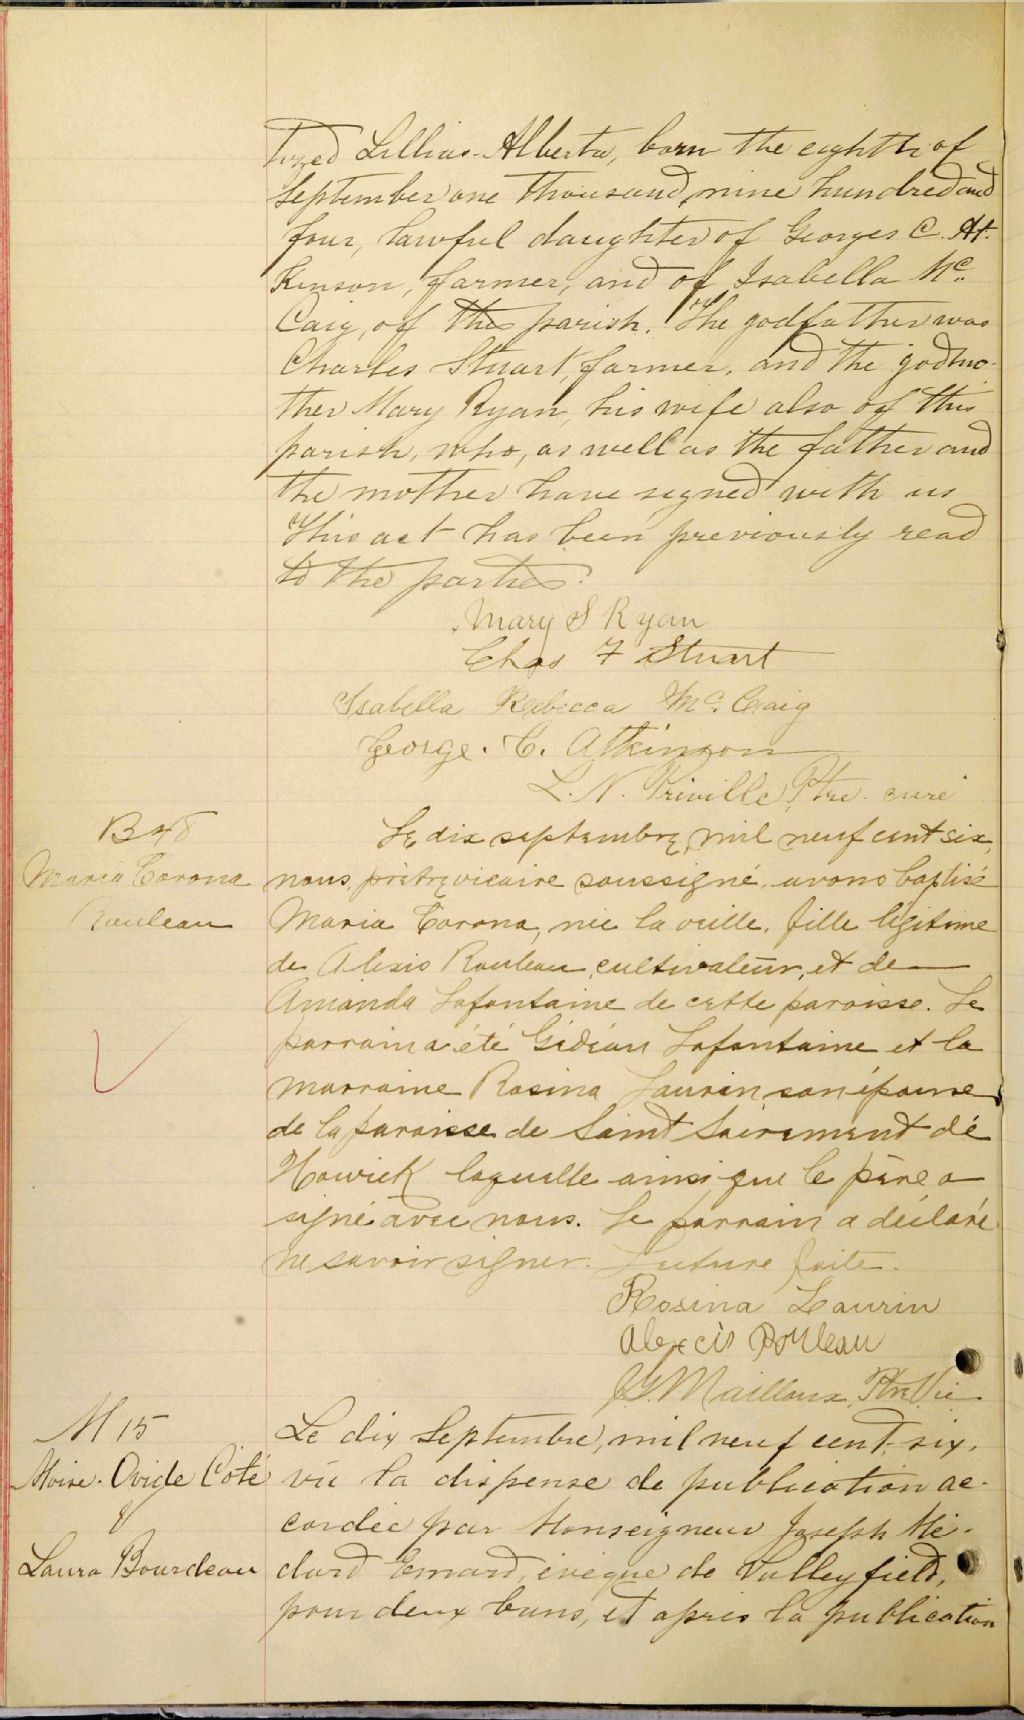 tized Lillias-Alberta, born the eighth of
September one thousand nine hundred and
four, lawful daughter of Georges C. At-
kinson, farmer, and of Isabella Mc
Caig, of this parish. The godfather was
Charles Stuart, farmer, and the godmo-
ther Mary Ryan, his wife also of this
parish, who, as well as the father and
the mother have signed with us
This act has been previously read
to the parties.
Mary S Ryan
Chas F Stuart
Isabella Rebecca Mc. Craig
George. C. Atkinson
L. N. Préville Ptre. curé
B 48
Maria Corona
Rouleau
Le dix septembre, mil neuf cent six,
nous, prêtre vicaire soussigné, avons baptisé
Maria Corona, née la veille, fille légitime
de Alexis Rouleau, cultivateur, et de
Amanda Lafontaine de cette paroisse. Le
parrain a été Gédéon Lafontaine et la
marraine Rosina Laurin son épouse
de la paroisse de Saint Sacrement de
Howick laquelle ainsi que le père a
signé avec nous. Le parrain a déclaré
ne savoir signer. Lecture faite.
Rosina Laurin
Alexcis Rouleau
J. Mailloux, Ptre Vic
M 15
Moïse-Ovide Côté
&
Laura Bourdeau
Le dix Septembre, mil neuf cent-six,
vu la dispense de publication ac-
cordée par Monseigneur Joseph Mé-
dard Emard, évêque de Valleyfield,
pour deux bans, et après la publication